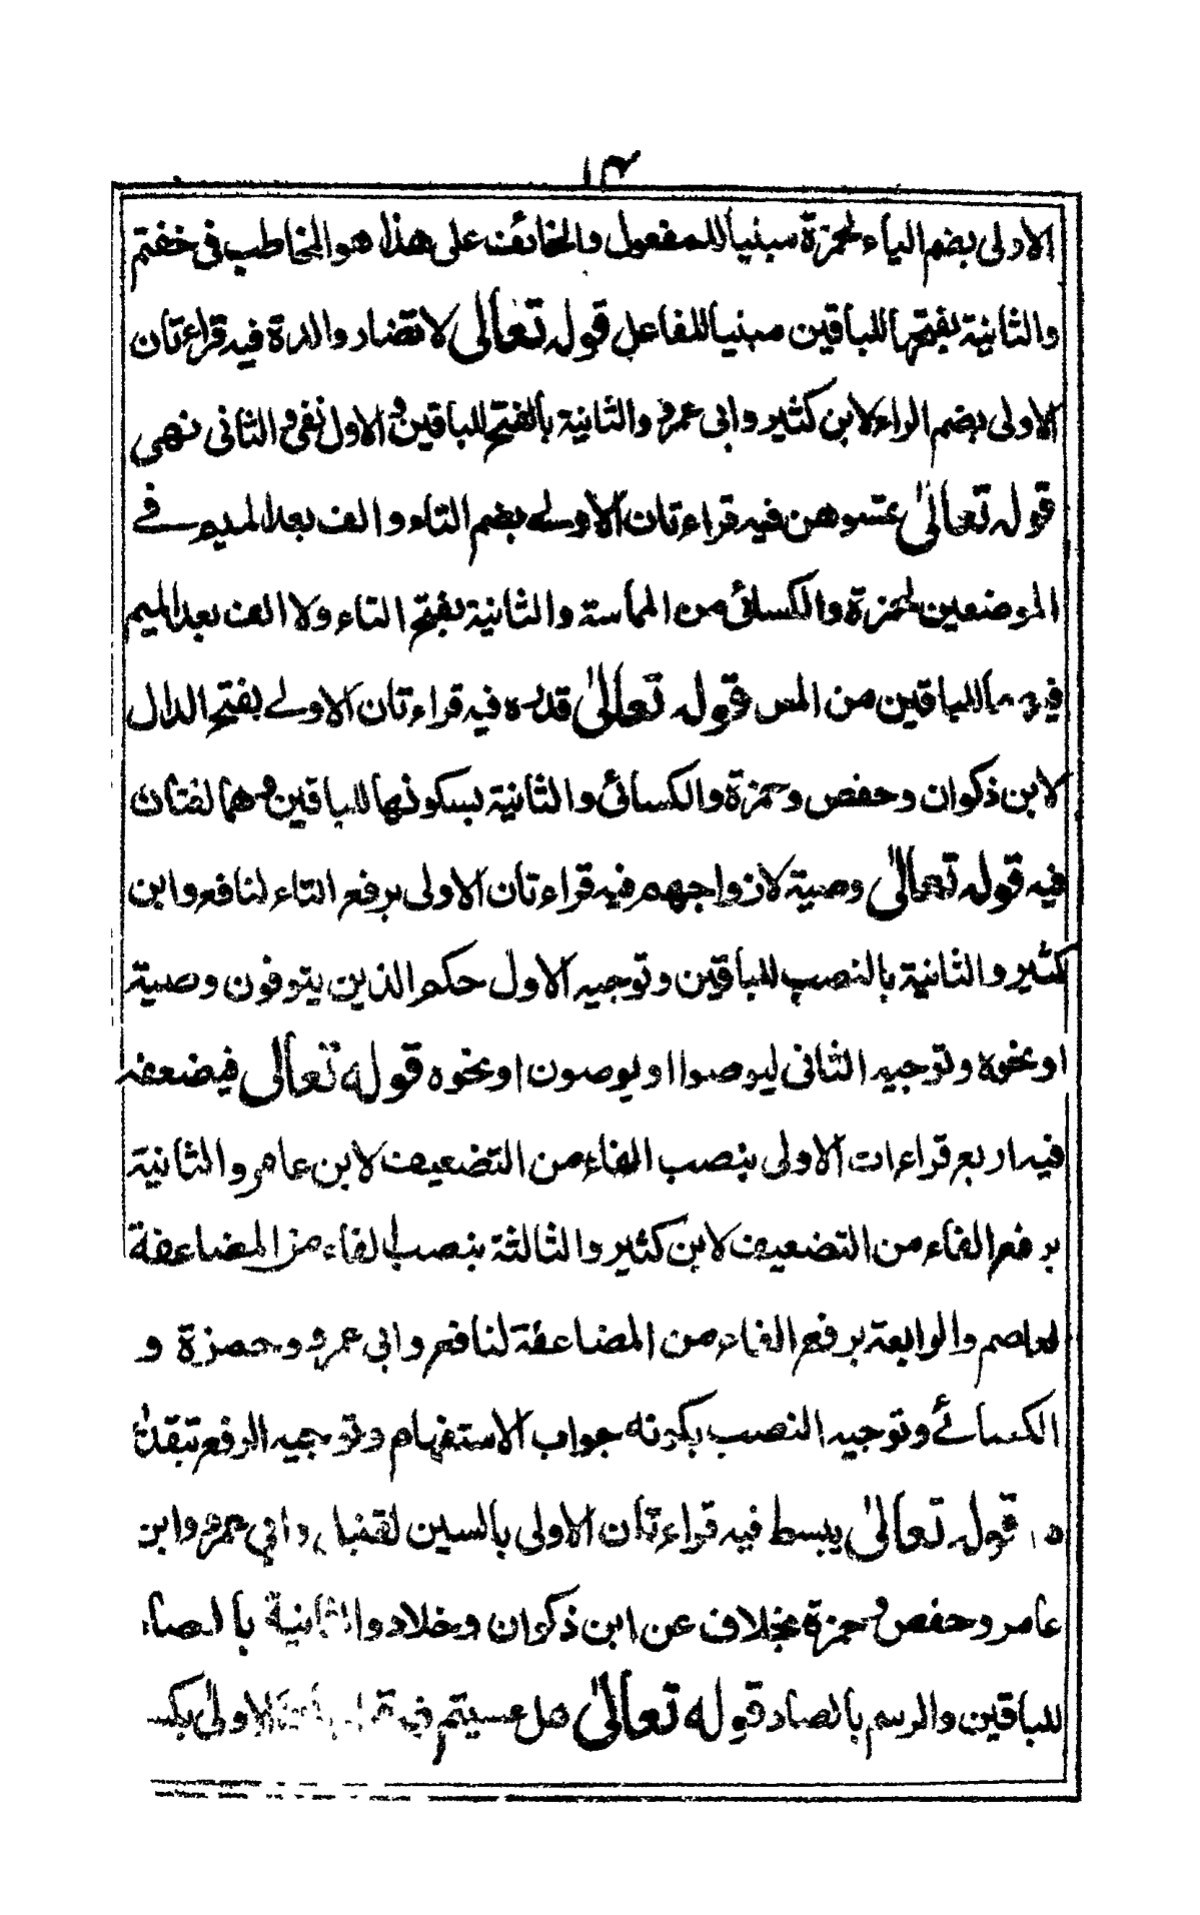 ١٣
الاولى بضم الياء لحمزة مبنيا للمفعول والخائف على هذا هو المخاطب فى خفتم
والثانية بفتحها للباقين مبنيا للفاعل قوله تعالى لا تضار والدة فيه قراءتان
الاولى بضم الراء لابن كثير وابى عمرو والثانية بالفتح للباقين والاول نفى والثانى نهى
قوله تعالىٰ تمسوهن فيه قراءتان الاولے بضم التاء والف بعد الميم فے
الموضعين لحمزة والكسائى من المماسة والثانية بفتح التاء ولا الف بعد الميم
فيهما للباقين من المس قوله تعالىٰ قدره فيه قراءتان الاولے بفتح الدال
لابن ذكوان وحفص وحمزة والكسائى والثانية بسكونها للباقين وهما لغتان
فيه قوله تعالىٰ وصية لازواجهم فيه قراءتان الاولى برفع التاء لنافع وابن
كثير والثانية بالنصب للباقين وتوجيه الاول حكم الذين يتوفون وصية
او نحوه وتوجيه الثانى ليوصوا او يوصون او نحوه قوله تعالى فيضعفه
فيه اربع قراءات الاولى بنصب الفاء من التضعيف لابن عامر والثانية
برفع الفاء من التضعيف لابن كثير والثالثة بنصب الفاء من المضاعفة
لعاصم والرابعة برفع الفاء من المضاعفة لنافع وابى عمرو وحمزة و
الكسائے وتوجيه النصب بكونه جواب الاستفهام وتوجيه الرفع تبقدا
ه قوله تعالىٰ يبسط فيه قراءتان الاولى بالسين لقنبل وابي عمرو وابن
عامر وحفص وحمزة بخلاف عن ابن ذكوان وخلاد والثانية بالصاد
للباقين والرسم بالصاد قوله تعالىٰ هل عسيتم فيه قراءتان الاولىٰ بكسر